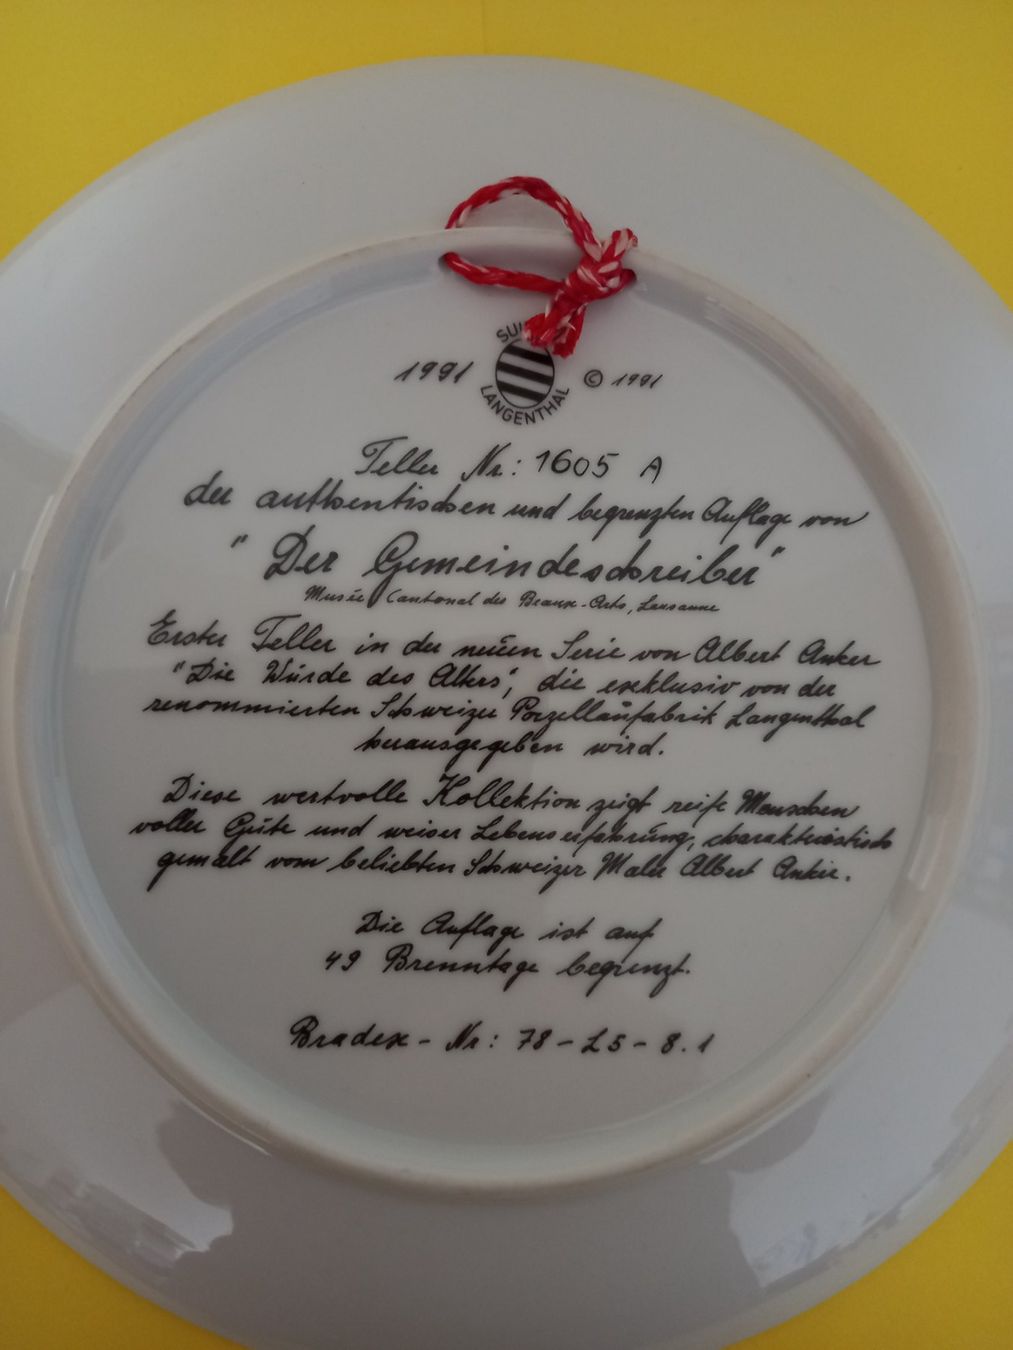 1991 SUI LANGENTHAL © 1991
Teller Nr: 1605 A
der authentischen und begrenzten Auflage von
"Der Gemeindeschreiber"
Musée Cantonal des Beaux-Arts, Lausanne
Erster Teller in der neuen Serie von Albert Anker
"Die Würde des Alters", die exklusiv von der
renommierten Schweizer Porzellanfabrik Langenthal
herausgegeben wird.
Diese wertvolle Kollektion zeigt reife Menschen
voller Güte und weiser Lebenserfahrung, charakteristisch
gemalt vom beliebten Schweizer Maler Albert Anker.
Die Auflage ist auf
49 Brenntage begrenzt.
Bradex-Nr: 78-L5-8.1